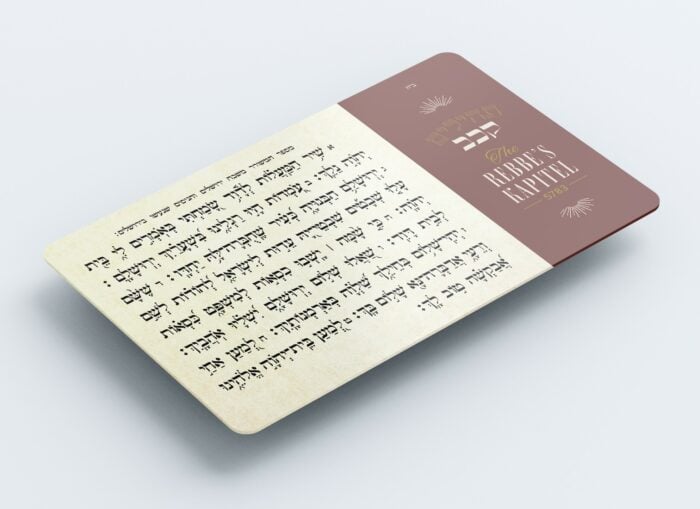 ב״ה
תהילים
קכב
The
REBBE'S
KAPITEL
5783
א שִׁיר הַמַּעֲלוֹת לְדָוִד שָׂמַחְתִּי בְּאֹמְרִים לִי בֵּית
יְהֹוָה נֵלֵךְ: ב עֹמְדוֹת הָיוּ רַגְלֵינוּ בִּשְׁעָרַיִךְ יְרוּשָׁלִָם:
ג יְרוּשָׁלִַם הַבְּנוּיָה כְּעִיר שֶׁחֻבְּרָה לָּהּ יַחְדָּו: ד שֶׁשָּׁם
עָלוּ שְׁבָטִים שִׁבְטֵי יָהּ עֵדוּת לְיִשְׂרָאֵל לְהֹדוֹת לְשֵׁם
יְהֹוָה: ה כִּי שָׁמָּה | יָשְׁבוּ כִסְאוֹת לְמִשְׁפָּט כִּסְאוֹת
לְבֵית דָּוִד: ו שַׁאֲלוּ שְׁלוֹם יְרוּשָׁלִָם יִשְׁלָיוּ אֹהֲבָיִךְ:
ז יְהִי שָׁלוֹם בְּחֵילֵךְ שַׁלְוָה בְּאַרְמְנוֹתָיִךְ: ח לְמַעַן אַחַי
וְרֵעָי אֲדַבְּרָה נָּא שָׁלוֹם בָּךְ: ט לְמַעַן בֵּית יְהֹוָה אֱלֹהֵינוּ
אֲבַקְשָׁה טוֹב לָךְ: